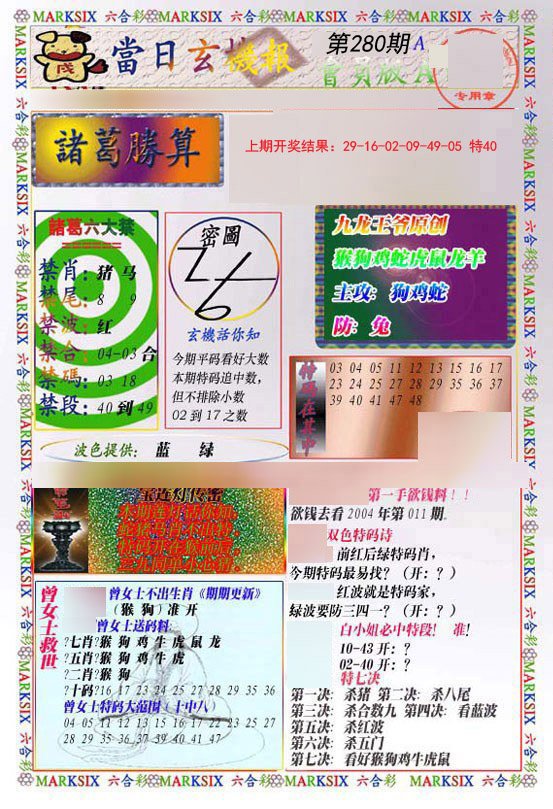 MARKSIX 六合彩 MARKSIX 六合彩 MARKSIX 六合彩 MARKSIX 六合彩
當日玄機报
第280期 A
會員版 A
专用章
諸葛勝算
上期开奖结果：29-16-02-09-49-05 特40
諸葛六大禁
禁肖：猪 马
禁尾：8 9
禁波：红
禁合：04-03 合
禁碼：03 18
禁段：40 到 49
密圖
玄機话你知
今期平码看好大数
本期特码追中数，
但不排除小数
02 到 17 之数
九龙王爷原创
猴狗鸡蛇虎鼠龙羊
主攻：狗鸡蛇
防：兔
03 04 05 11 12 13 15 16 17
23 24 25 27 28 29 35 36 37
39 40 41 47 48
波色提供： 蓝 绿
第一手欲钱料！！
欲钱去看 2004 年第 011 期。
双色特码诗
前红后绿特码肖，
今期特码最易找？（开：？）
红波就是特码家，
绿波要防三四一？（开：？）
白小姐必中特段！ 准！
10-43 开：？
02-40 开：？
特七决
第一决：杀猪 第二决：杀八尾
第三决：杀合数九 第四决：看蓝波
第五决：杀红波
第六决：杀五门
第七决：看好猴狗鸡牛虎鼠
曾女士救世
曾女士不出生肖《期期更新》
（猴 狗）准 开
曾女士送码料.
?七肖?猴 狗 鸡 牛 虎 鼠 龙
?五肖?猴 狗 鸡 牛 虎
?二肖?猴 狗
?十码?16 17 23 24 25 27 28 29 35 36
曾女士特码大范围（十中八）
04 05 11 12 13 15 16 17 22 23 25 27
28 29 35 36 37 39 40 41 47
MARKSIX 六合彩 MARKSIX 六合彩 MARKSIX 六合彩 MARKSIX 六合彩